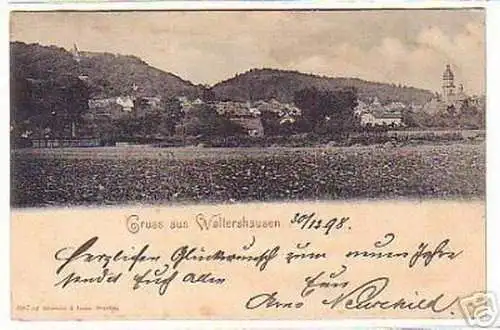 Gruss aus Waltershausen 30/12 98.
Herzlichen Glückwunsch zum neuen Jahre
sendet Euch Allen
Euer
Arno